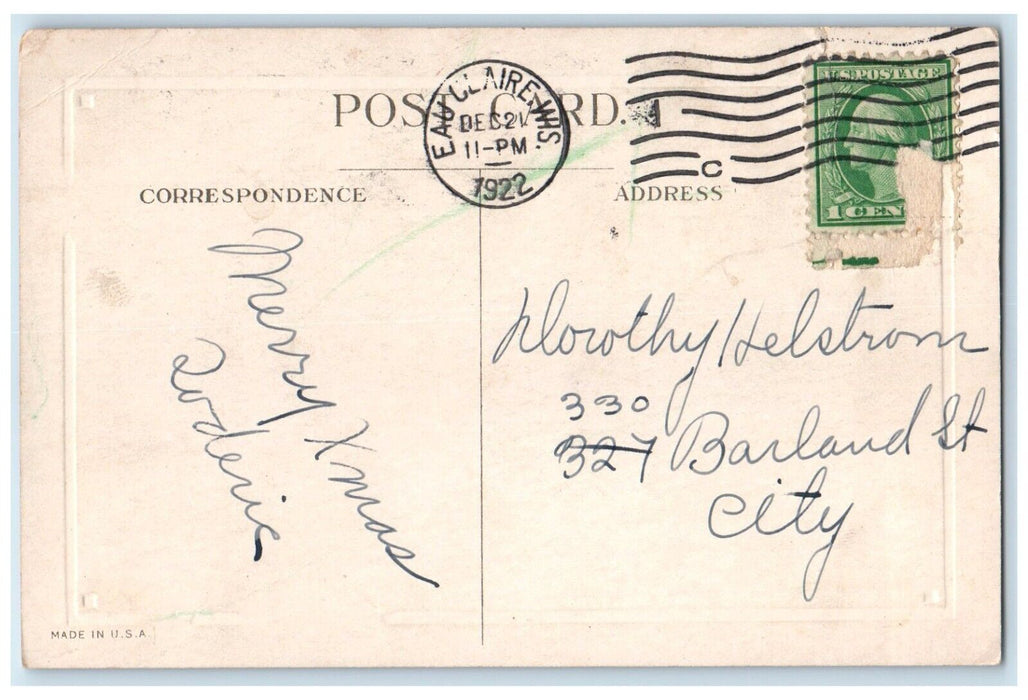 POST CARD.
EAU CLAIRE, WIS.
DEC 21
11-PM
1922
C
U.S. POSTAGE
1 CEN
CORRESPONDENCE
ADDRESS
Merry Xmas
Dorothy Helstrom
330
327 Barland St
City
MADE IN U.S.A.